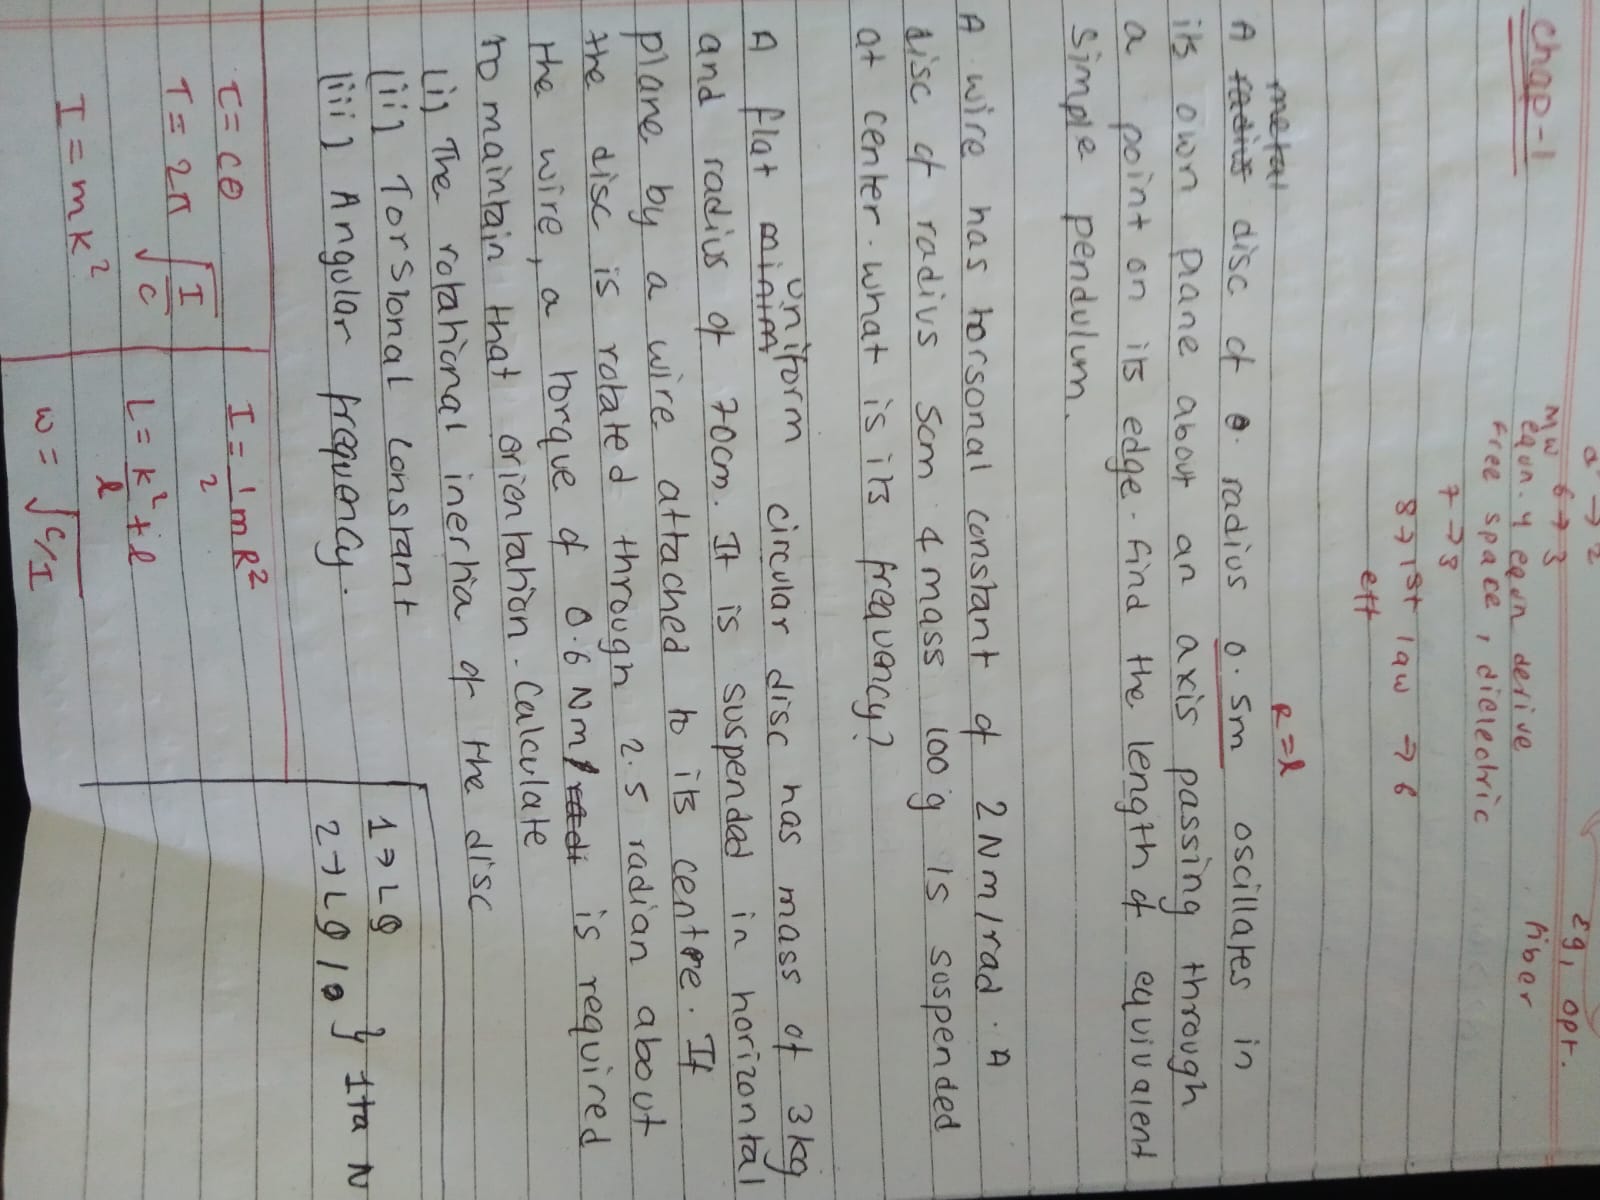 Chap-1
a → 2
6 → 3
MW
eqn. 4 eqn derive
free space, dielectric
7 → 3
8 → 1st law → 6
eff
Eg, opt.
fiber
R = l
metal
A radius disc of 0. radius 0.5m oscillates in
its own plane about an axis passing through
a point on its edge. find the length of equivalent
simple pendulum.
A wire has torsonal constant of 2Nm/rad. A
disc of radius 5cm & mass 100g is suspended
at center. what is its frequency?
uniform
A flat circular disc has mass of 3kg
and radius of 70cm. It is suspended in horizontal
plane by a wire attached to its centre. If
the disc is rotated through 2.5 radian about
the wire, a torque of 0.6 Nm is required
to maintain that orientation. Calculate
(i) The rotational inertia of the disc
(ii) Torsional constant
(iii) Angular frequency.
τ = cθ
T = 2π √I/c
I = mk²
I = 1/2 mR²
L = k²/l + l
w = √c/I
1 → L9
2 → L9, 10 } 1ta N